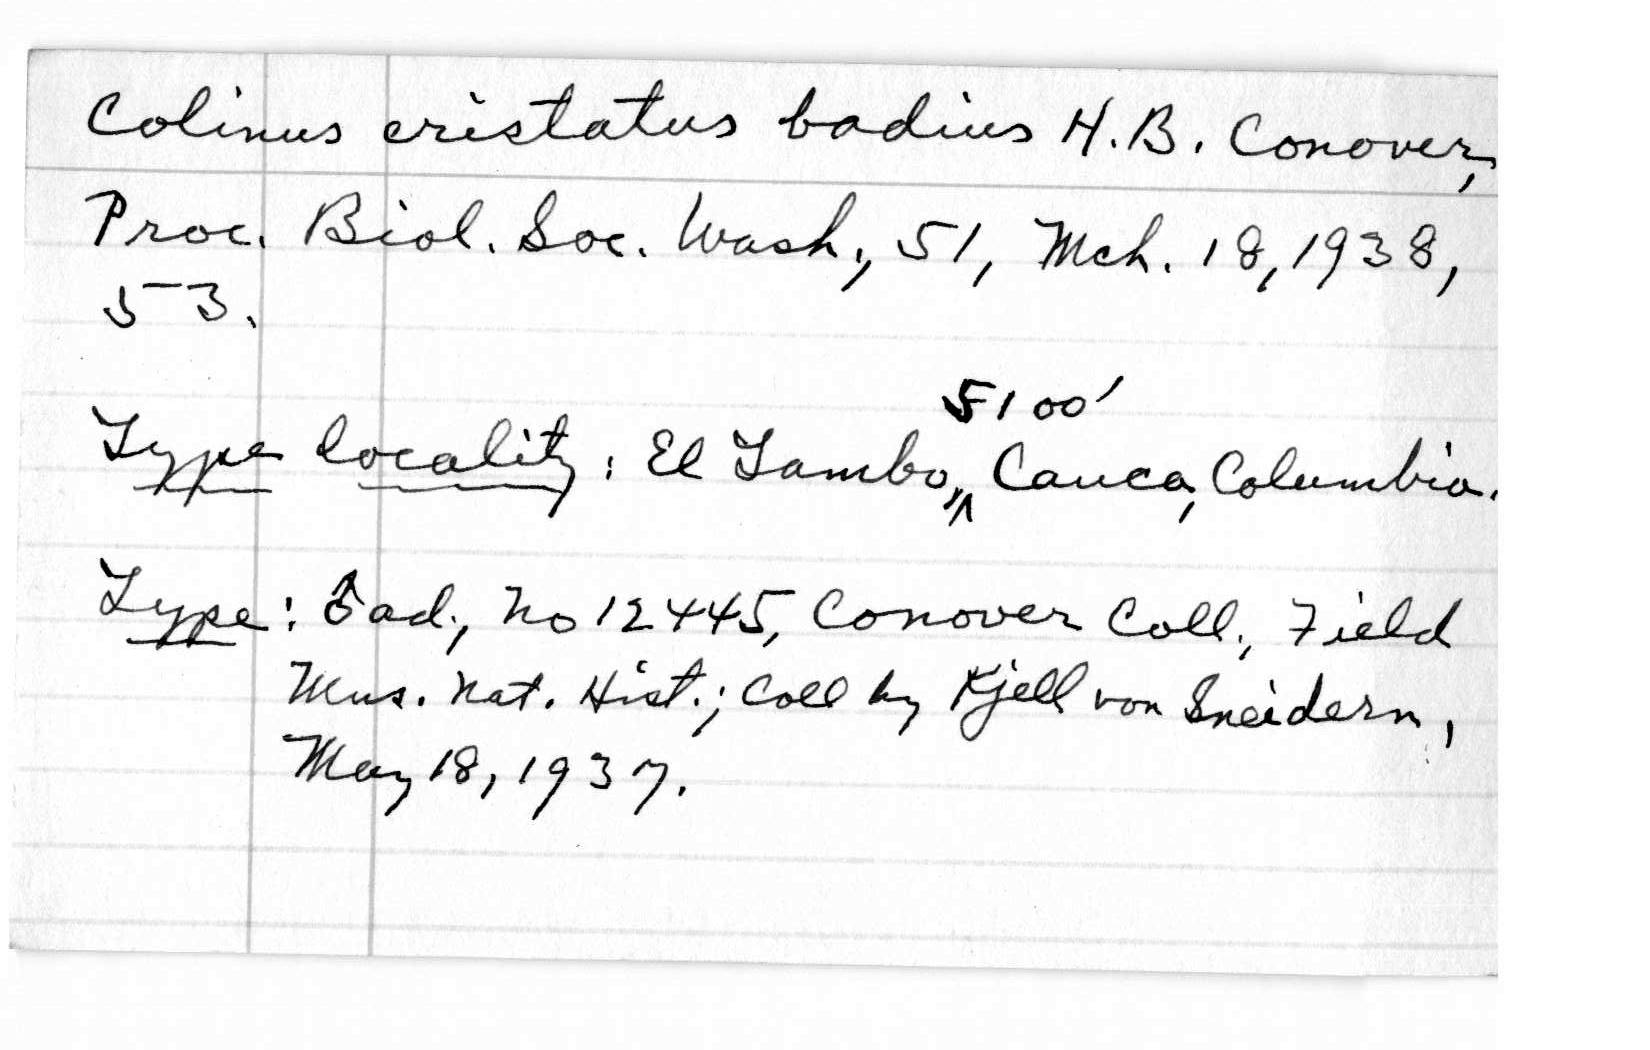 Colinus cristatus badius H. B. Conover,
Proc. Biol. Soc. Wash., 51, Mch. 18, 1938,
53.
5100'
Type locality: El Tambo,^, Cauca, Columbia.
Type: ♂ ad., No 12445, Conover Coll., Field
Mus. Nat. Hist.; Coll by Kjell von Sneidern,
May 18, 1937.